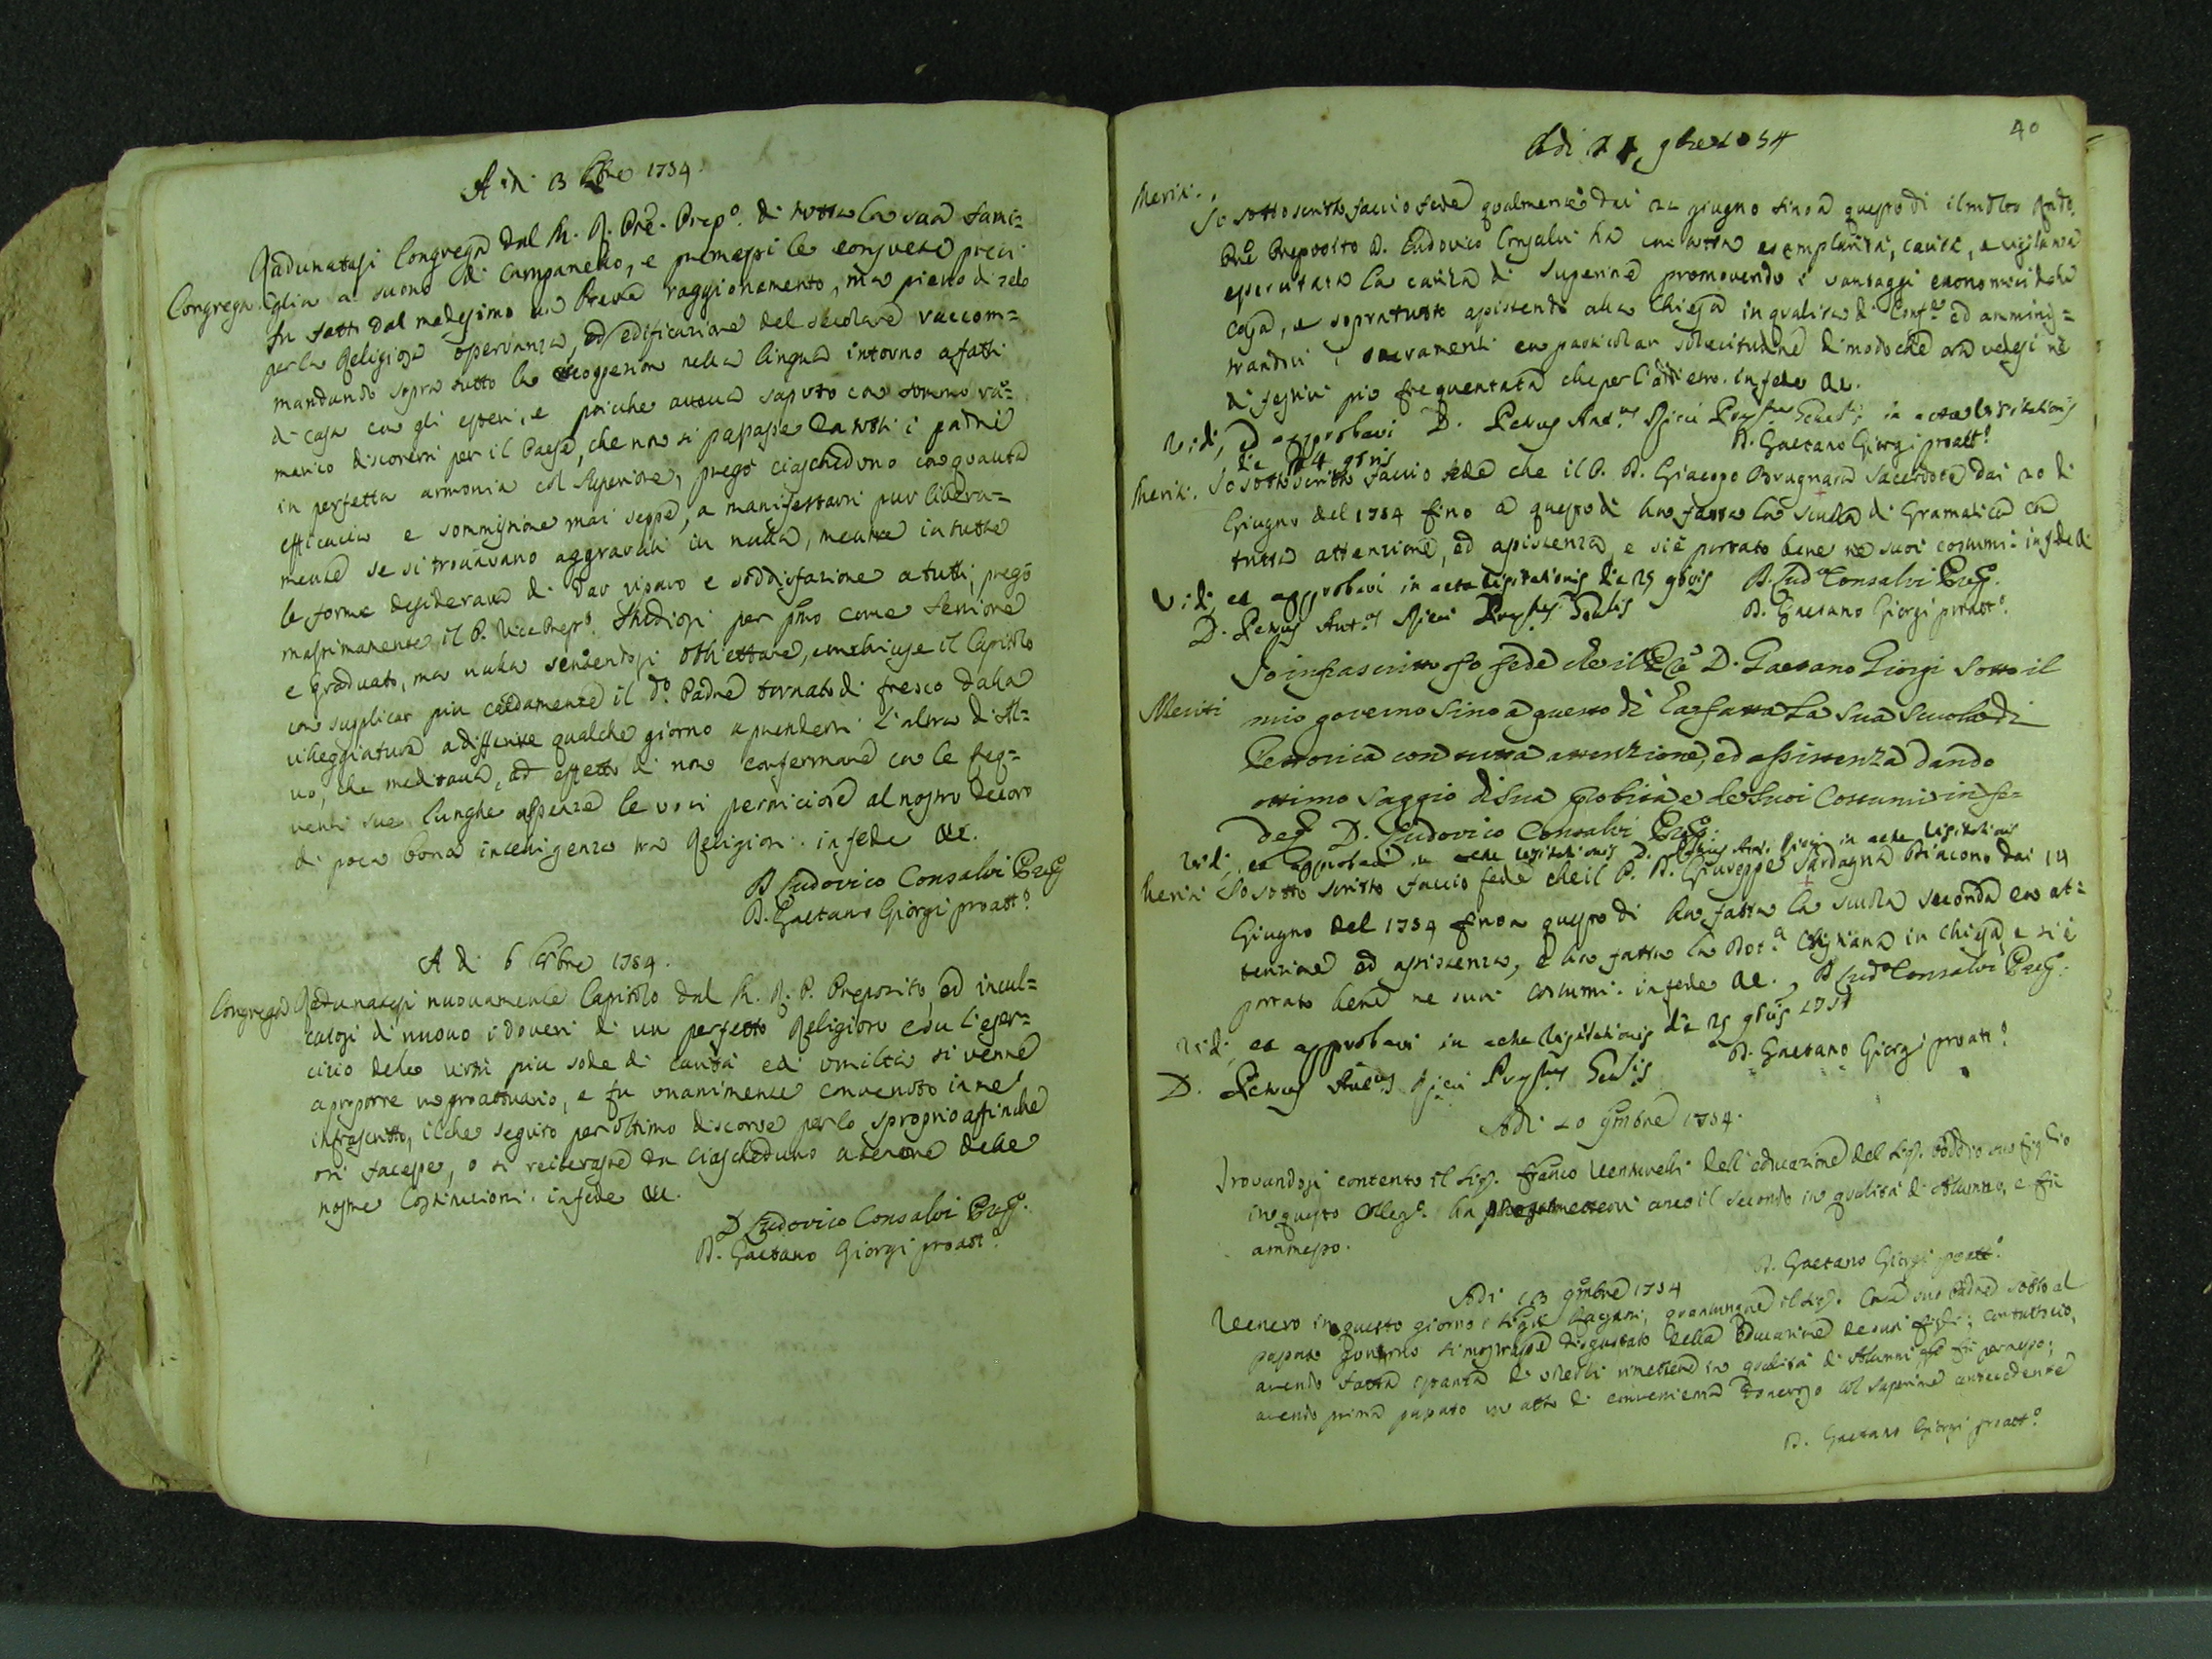 A di 13 8bre 1734.
Congrega.
Radunatasi Congrega dal M. R. Pre. Prepo. di tutta la sua fami=
glia a suono di Campanello, e premessi le consuete preci
fu fatto dal medesimo un breve raggionamento, ma pieno di zelo
per la Religiosa osservanza, ed edificazione del secolare raccom=
mandando sopra tutto la nella lingua intorno a fatti
di casa con gli esteri, e poiche aveva saputo con sommo ra=
marico discorersi per il Paese, che non si passasse da tutti i padri
in perfetta armonia col Superiore, pregò ciascheduno con quanta
efficacia e sommissione mai seppe, a manifestarsi pur libera=
mente se si trovavano aggravati in nulla, mentre in tutte
le forme desiderava di dar riparo e soddisfazione a tutti, pregò
massimamente il P. Vice Prepo. per pmo come Seniore
e graduato, ma nulla sentendosi obbiettare, conchiuse il Capitolo
con supplicar piu caldamente il do. Padre tornato di fresco dalla
villeggiatura a differire qualche giorno a prendersi l'altra di Al=
vo, che meditava, ad effetto di non confermare con le freq=
uenti sue lunghe assenze le voci perniciose al nostro decoro
di poca bona intelligenza tra Religiosi. in fede &c.
D Ludovico Consalvi Prep
D. Gaetano Giorgi proatto.
A di 6 9bre 1734.
Congrega
Radunatosi nuovamente Capitolo dal M. R. P. Preposito, ed incul=
catosi di nuovo i doveri di un perfetto Religioso e su l'eser=
cizio delle virtù piu sode di carità ed umiltà si venne
a proporre un proattuario, e fu unanimente convenuto in me
infrascritto, il che seguito per ultimo discorse per lo sproprio affinche
ori facesse, o si reiterasse da ciascheduno a tenore delle
nostre Costituzioni. in fede &c.
D Ludovico Consalvi Prep.
D. Gaetano Giorgi proatto.
40
Adi 9bre 1734
Meriti.
Io sottoscritto faccio fede qualmente dai 22 giugno sino a questo di il molto Rndo.
Pre Preposito D. Ludovico Consalvi ha con tutta esemplarità, carità, e vigilanza
esercitata la carica di Superiore promovendo i vantaggi economici della
casa, e sopratutto assistendo alla Chiesa in qualità di Confre. ed amminis=
trandovi i sacramenti con particolar sollecitudine di modo che ora vedesi ne
di festivi piu frequentata che per l'addietro. in fede &c.
Vidi, et approbavi D. Petrus Antus in actu Visitationis
die 24 9bris
D. Gaetano Giorgi proatto.
Meriti.
Io sottoscritto faccio fede che il P. D. Giacopo Brugnara Sacerdote dai 20 di
Giugno del 1734 fino a questo di ha fatta la scuola di Gramatica con
tutta attenzione, ed assistenza, e si è portato bene ne suoi costumi. in fede &
Vidi, et approbavi in actu Visitationis die 25 9bris D. Ludo Consalvi Prep.
D. Petrus Antus
D. Gaetano Giorgi proatto.
Meriti
Io infrascritto fo fede che il Pre D. Gaetano Giorgi sotto il
mio governo sino a questo dì ha fatta la sua scuola di
Rettorica con tutta attenzione, ed assistenza dando
ottimo saggio di sua probità e de suoi costumi in fe=
de & D. Ludovico Consalvi Prep.
Vidi, et approbavi in actu Visitationis D. Petrus Ant. in actu Visitationis
Meriti
Io sotto scritto faccio fede che il P. D. Giuseppe Sardagna Diacono dai 14
Giugno del 1734 fino a questo di ha fatta la scuola seconda con at=
tenzione ed assistenza, e ha fatta la Dota. Cristiana in chiesa e si è
portato bene ne suoi costumi. in fede &c. D Ludo Consalvi Prep.
Vidi, et approbavi in actu Visitationis die 25 9bris 1734
D. Petrus Antus
D. Gaetano Giorgi proatto.
Adi 20 9mbre 1734.
Trovandosi contento il Sig. Franco Venturelli dell'educazione del Sig. suo figlio
in questo Collego. ha anco il secondo in qualità di Alunno, e fu
ammesso.
D. Gaetano Giorgi proatto.
Adi 23 9mbre 1734
Vennero in questo giorno i Sigri Pagani, quantunque il Sig. suo Padre sotto al
passato governo si mostrasse disgustato della Educazione de suoi figli; contuttocio,
avendo fatta istanza di volerli rimettere in qualità di Alunni gli fu permesso;
avendo prima passato un atto di convenienza doveroso col Superiore antecedente
D. Gaetano Giorgi proatto.